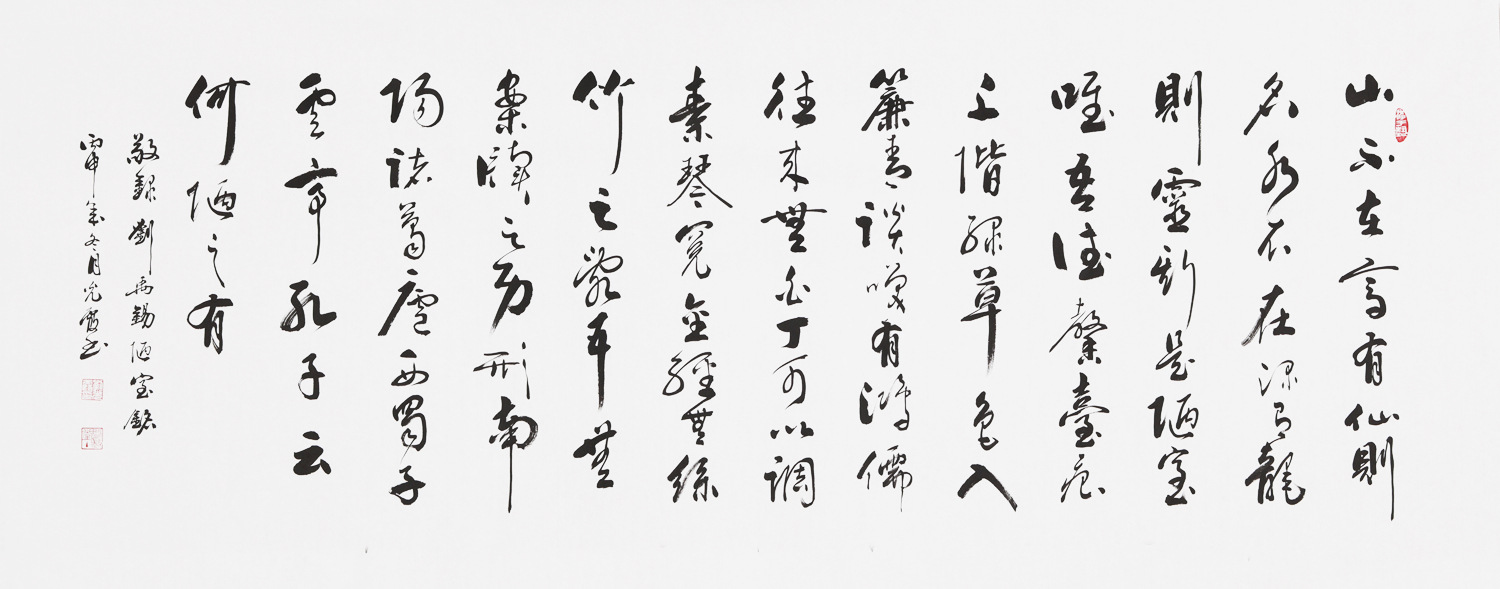 山不在高有仙則
名水不在深有龍
則靈斯是陋室
唯吾德馨臺痕
上階綠草色入
簾青談咲有鴻儒
往來無白丁可以調
素琴閱金經無絲
竹之亂耳無
案牘之勞形南
陽諸葛廬西蜀子
雲亭孔子云
何陋之有
敬錄劉禹錫陋室銘
丙申歲冬月書